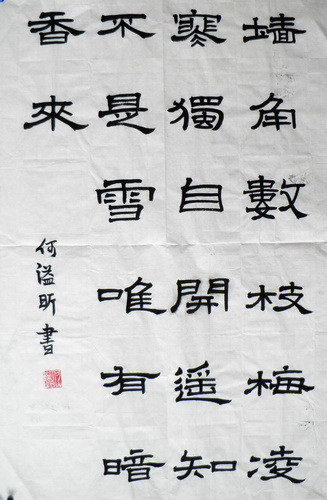 墙角數枝梅凌
寒獨自開遥知
不是雪唯有暗
香來
何溢昕書